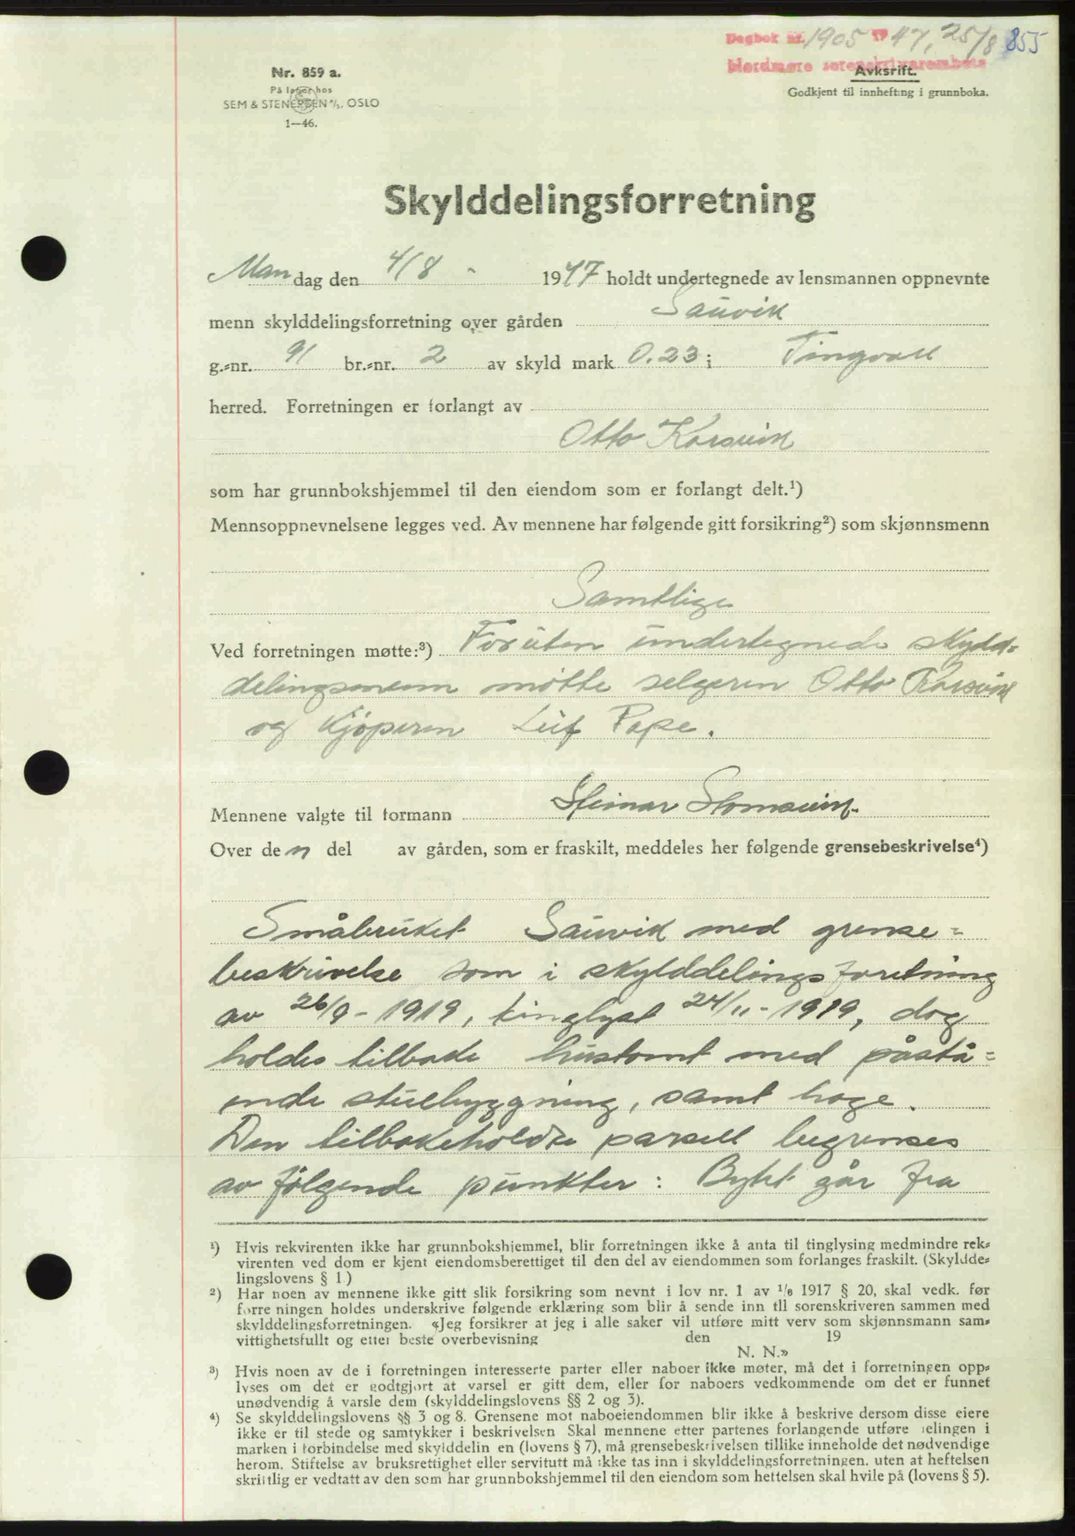 Dagbok nr. 1905 1947, 25/8 855
Nordmøre sorenskriverembete
Nr. 859 a.
Avkskrift.
På lager hos
Godkjent til innhefting i grunnboka.
SEM & STENERSEN A/S. OSLO
1—46.
Skylddelingsforretning
Man dag den 4/8 - 1947 holdt undertegnede av lensmannen oppnevnte
menn skylddelingsforretning over gården Sauvik
g.-nr. 91 br.-nr. 2 av skyld mark 0.23 i Tingvoll
herred. Forretningen er forlangt av
Otto Korsvik
som har grunnbokshjemmel til den eiendom som er forlangt delt.¹)
Mennsoppnevnelsene legges ved. Av mennene har følgende gitt forsikring²) som skjønnsmenn
Samtlige
Ved forretningen møtte:³) Foruten undertegnede skyld=
delingsmenn møtte selgeren Otto Korsvik
og kjøperen Leif Pape.
Mennene valgte til formann Steinar Stomsvik.
Over de n del av gården, som er fraskilt, meddeles her følgende grensebeskrivelse⁴)
Småbruket Sauvik med grense=
beskrivelse som i skylddelingsforretning
av 26/9 - 1919, tinglyst 24/11 - 1919, dog
holdes tilbake hustomt med påstå=
ende stuebyggning, samt hage.
Den tilbakeholdte parsell begrenses
av følgende punkter: Bytet går fra
¹) Hvis rekvirenten ikke har grunnbokshjemmel, blir forretningen ikke å anta til tinglysing medmindre rek-
virenten ved dom er kjent eiendomsberettiget til den del av eiendommen som forlanges fraskilt. (Skyldde-
lingslovens § 1.)
²) Har noen av mennene ikke gitt slik forsikring som nevnt i lov nr. 1 av 1/6 1917 § 20, skal vedk. før
forretningen holdes underskrive følgende erklæring som blir å sende inn til sorenskriveren sammen med
skylddelingsforretningen. «Jeg forsikrer at jeg i alle saker vil utføre mitt verv som skjønnsmann sam-
vittighetsfullt og etter beste overbevisning den 19
N. N.»
³) Hvis noen av de i forretningen interesserte parter eller naboer ikke møter, må det i forretningen opp-
lyses om det er godtgjort at varsel er gitt dem, eller for naboers vedkommende om det er funnet
unødvendig å varsle dem (skylddelingslovens §§ 2 og 3).
⁴) Se skylddelingslovens §§ 3 og 8. Grensene mot naboeiendommen blir ikke å beskrive dersom disse eiere
ikke er til stede og samtykker i beskrivelsen Skal mennene etter partenes forlangende utføre delingen i
marken i forbindelse med skylddelin en (lovens § 7), må grensebeskrivelsen tillike inneholde det nødvendige
herom. Stiftelse av bruksrettighet eller servitutt må ikke tas inn i skylddelingsforretningen, uten at heftelsen
skriftlig er vedtatt av den som har grunnbokshjemmel til den eiendom som heftelsen skal hvile på (lovens § 5).